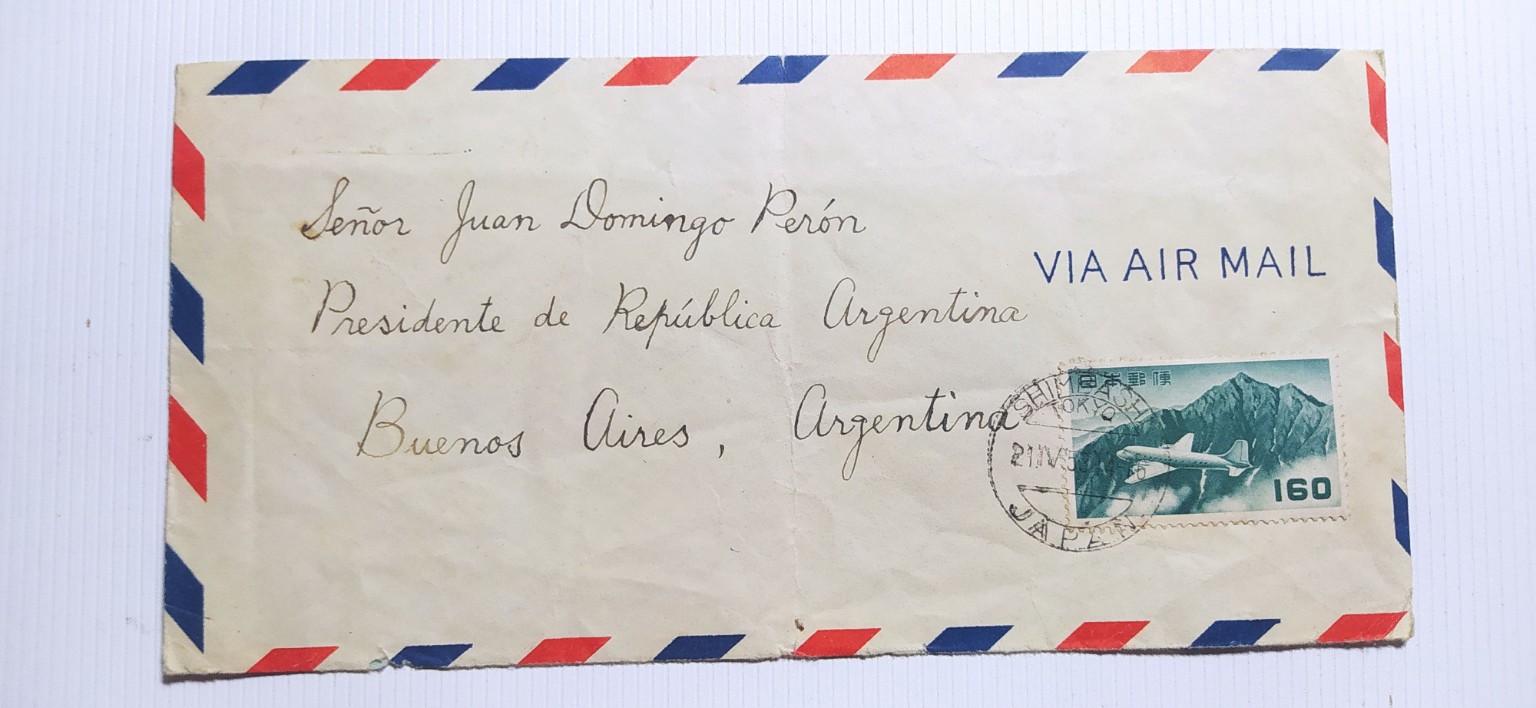 Señor Juan Domingo Perón
Presidente de República Argentina
Buenos Aires, Argentina
VIA AIR MAIL
日本郵便
160
SHIMBASHI
TOKYO
JAPAN